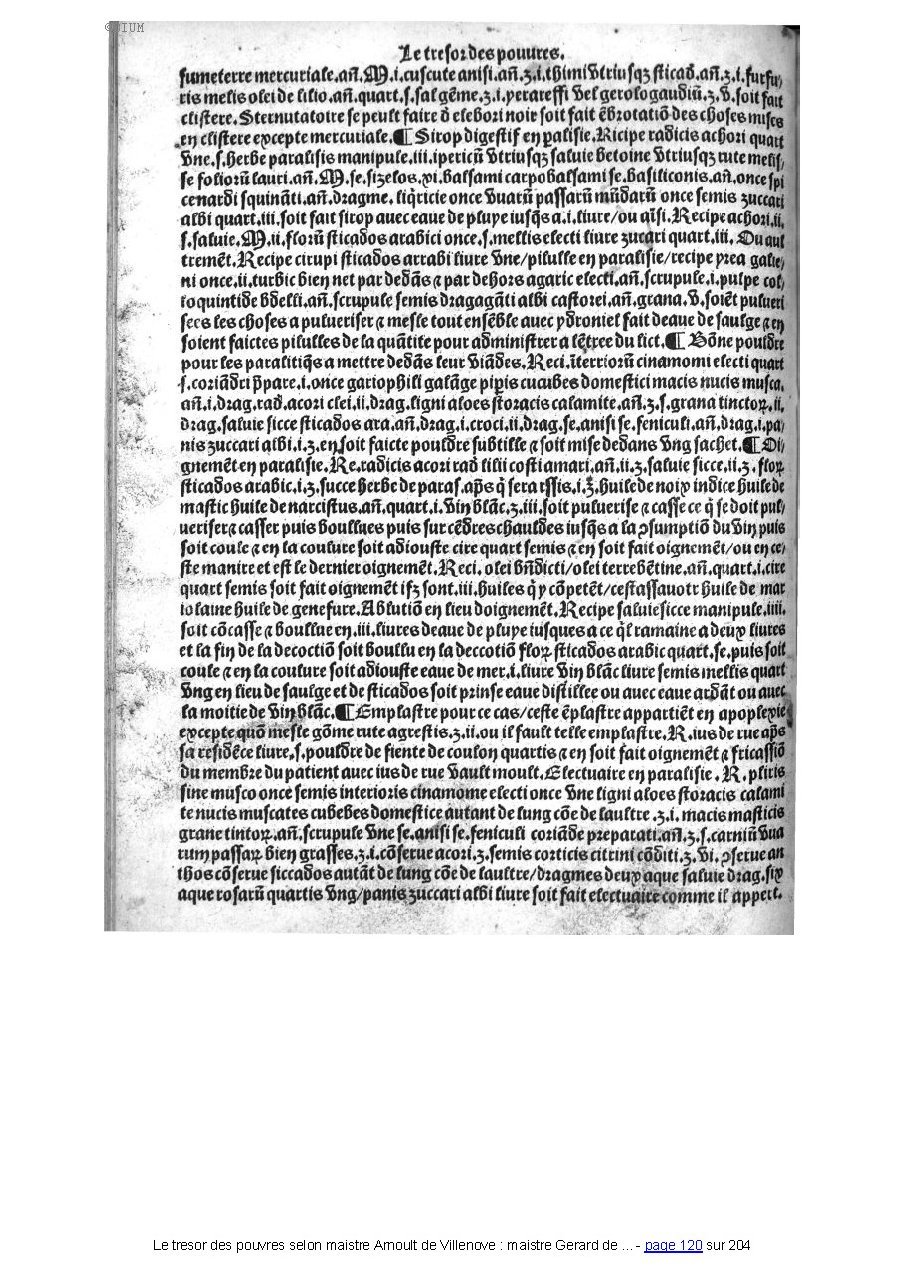 ©BIUM
Le tresor des pouures.
fumeterre mercuriale.añ.M.i.cuscute anisi.añ.ʒ.i.thimi vtriusqʒ sticad̄.añ.ʒ.i.furfu/
ris melis olei de lilio.añ.quart.s.sal gẽme.ʒ.i.yerareffi vel gerologaudiũ.ʒ.v.soit fait
clistere.Sternutatoire se peult faire d̄ elebori noir soit fait ẽbrotatiõ des choses mises
en clistere excepte mercuriale.¶ Sirop digestif en palisie.Ricipe radicis achori quart
vne.s.herbe paralisis manipule.iii.ipericũ vtriusqʒ saluie betoine vtriusqʒ rute melis/
se foliorũ lauri.añ.M.se.sizelos.xi.balsami carpobalsami se.basiliconis.añ.once spi
cenardi squināti.añ.dragme.liq̃ricie once vuarũ passarũ mũdarũ once semis zuccari
albi quart.iii.soit fait sirop auec eaue de pluye iusq̃s a.i.liure/ou q̃si.Recipe achori.ii.
s.saluie.M.ii.florũ sticados arabici once.s.mellis electi liure zucari quart.iii. Ou aul
tremẽt.Recipe cirupi sticados arrabi liure vne/pilulle en paralisie/recipe yrea galie/
ni once.ii.turbic bien net par dedãs ⁊ par dehors agaric electi.añ.scrupule.i.pulpe col/
loquintide bdelli.añ.scrupule semis dragagãti albi castorei.añ.grana.v.soiẽt pulueri
sees les choses a pulueriser ⁊ mesle tout ensẽble auec ydromel fait deaue de saulge ⁊ en
soient faictes pilulles de la quãtite pour administrer a lẽtree du lict.¶ Bõne pouldre
pour les paralitiq̃s a mettre dedãs leur viãdes.Reci.ĩterriorũ cinamomi electi quart
.s.coriãdri p̃pare.i.once gariophili galãge piperis cucubes domestici macis nucis musca.
añ.i.drag.rad̄.acori clei.ii.drag.ligni aloes storacis calamite.añ.ʒ.s.grana tinctoꝝ.ii.
drag.saluie sicce sticados ara.añ.drag.i.croci.ii.drag.se.anisi se.feniculi.añ.drag.i.pa/
nis zuccari albi.i.ʒ.en soit faicte pouldre subtille ⁊ soit mise dedans vng sachet.¶ Oi/
gnemẽt en paralisie.Re.radicis acori rad̄ lilii costiamari.añ.ii.ʒ.saluie sicce.ii.ʒ.floꝝ
sticados arabic.i.ʒ.succe herbe de paras.ap̃s q̃ sera rssis.i.ʒ.huile de noix indice huile de
mastic huile de narcistus.añ.quart.i.vin blãc.ʒ.iii.soit puluerise ⁊ casse ce q̃ se doit pul/
ueriser⁊ casser puis boullues puis sur cẽdres chauldes iusq̃s a la ꝯsumptiõ du vin puis
soit coule ⁊ en la coulure soit adiouste cire quart semis ⁊ en soit fait oignemẽt/ou en ce/
ste manire et est le dernier oignemẽt.Reci. olei bñdicti/olei terrebẽtine.añ.quart.i.cire
quart semis soit fait oignemẽt ifʒ sont.iii.huiles q̃ y cõpetẽt/cestassauotr huile de mar
iolaine huile de genefure.Ablutiõ en lieu doignemẽt.Recipe saluie sicce manipule.iiii.
soit cõcasse ⁊ boullue en.iii.liures deaue de pluye iusques a ce q̃l ramaine a deux liures
et la fin de la decoctiõ soit boullu en la deccotiõ floꝝ sticados arabic quart.se.puis soit
coule ⁊ en la coulure soit adiouste eaue de mer.i.liure vin blãc liure semis mellis quart
vng en lieu de saulge et de sticados soit prinse eaue distillee ou auec eaue ardãt ou auec
la moitie de vin blãc.¶ Emplastre pour ce cas/ceste ẽplastre appartiẽt en apoplexie
excepte quõ mesle gõme rute agrestis.ʒ.ii.ou il fault telle emplastre.R.ius de rue ap̃s
sa residẽce liure.s.pouldre de fiente de coulon quartis ⁊ en soit fait oignemẽt ⁊ fricassiõ
du membre du patient auec ius de rue vault moult.Electuaire en paralisie.R.pliris
sine musco once semis interioris cinamome electi once vne ligni aloes storacis calami
te nucis muscates cubebes domestice autant de lung cõe de laultre.ʒ.i.macis masticis
grane tintoꝝ.añ.scrupule vne se.anisi se.feniculi coriãde preparati.añ.ʒ.s.carniũ vua
rum passaꝝ bien grasses.ʒ.i.cõserue acori.ʒ.semis corticis citrini cõditi.ʒ.vi.ꝯserue an
thos cõserue siccados autãt de lung cõe de laultre/dragmes deux aque saluie drag.six
aque rosarũ quartis vng/panis zuccari albi liure soit fait electuaire comme il appert.
Le tresor des pouvres selon maistre Arnoult de Villenove : maistre Gerard de ... - page 120 sur 204